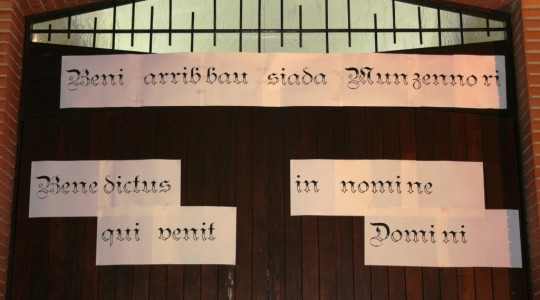 Beni arribbau siada Munzennori
Benedictus in nomine
qui venit Domini